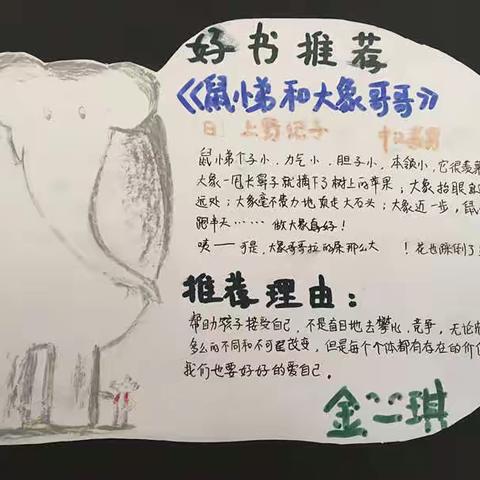 好书推荐
《鼠小弟和大象哥哥》
日 上野纪子
鼠小弟个子小，力气小，胆子小，本领小，它很羡慕
大象一甩长鼻子就摘下了树上的苹果；大象抬眼
远处；大象毫不费力地顶走大石头；大象迈一步，鼠
跑半天……做大象真好！
咦——可是，大象哥哥拉的屎那么大！花也踩倒了
推荐理由：
帮助孩子接受自己，不是盲目地去攀比，竞争，无论
多么的不同和不可改变，但是每个个体都有存在的价值
我们也要好好的爱自己。
金心琪